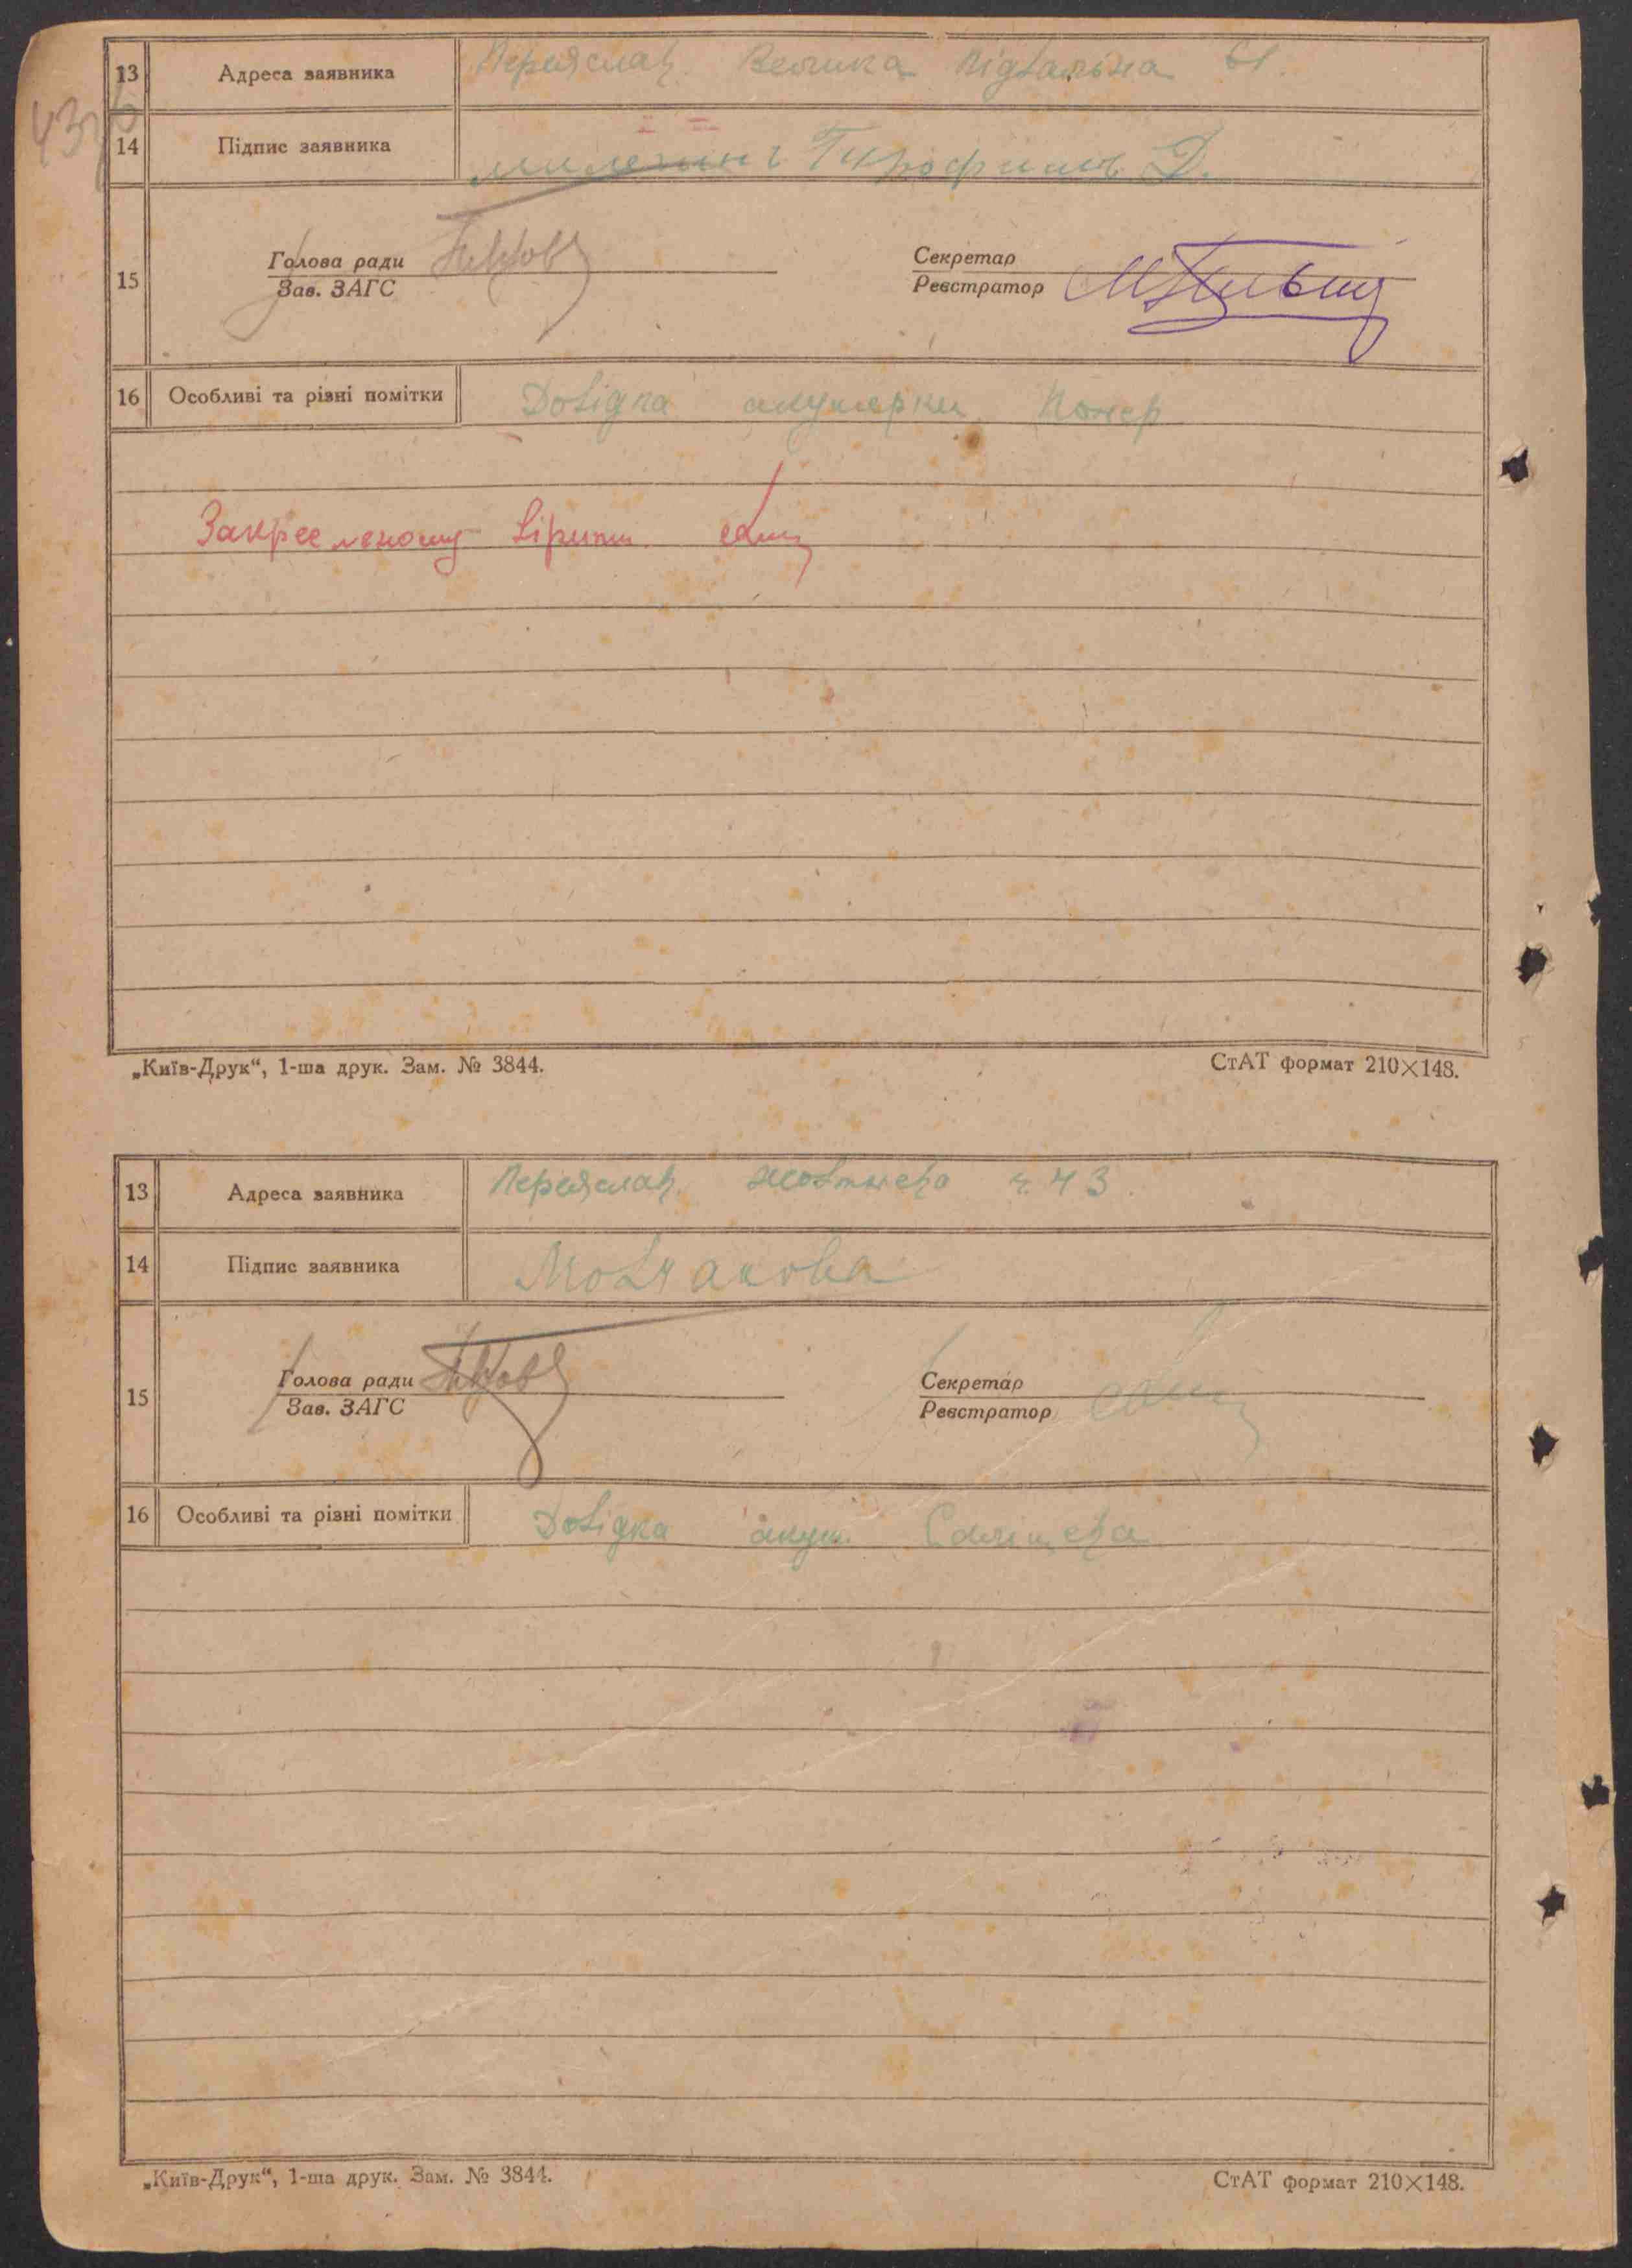 13 Адреса заявника Переяслав Велика Підвальна 61.
43
14 Підпис заявника Д.
15 Голова ради Секретар
Зав. ЗАГС Реєстратор
16 Особливі та різні помітки Довідка акушерки
Закресленому вірити
„Київ-Друк“, 1-ша друк. Зам. № 3844. СтАТ формат 210×148.
13 Адреса заявника Переяслав Жовтнева ч. 43.
14 Підпис заявника Мовчакова
15 Голова ради Секретар
Зав. ЗАГС Реєстратор
16 Особливі та різні помітки Довідка акуш.
„Київ-Друк“, 1-ша друк. Зам. № 3844. СтАТ формат 210×148.